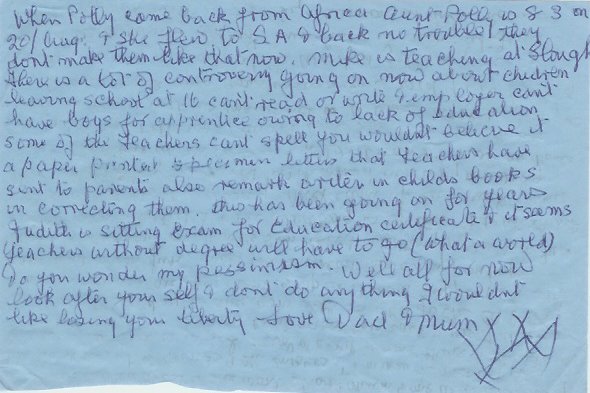 When Polly come back from Africa Aunt Polly is 83 on
20/Aug. & she flew to S.A & back no trouble they
dont make them like that now. Mike is teaching at Slough
there is a lot of controversy going on now about chidren
leaving school at 16 cant read or write & employer cant
have boys for apprentice owing to lack of education
some of the teachers cant spell you wouldnt believe it
a paper printed specimen letters that teachers have
sent to parents also remark writen in childs books
in correcting them. this has been going on for years
Judith is sitting exam for Education certificate & it seems
teachers without degree will have to go (what a world)
Do you wonder my pessimism. Well all for now
look after your self & dont do anything I wouldnt
like losing your liberty Love Dad & Mum
XXX